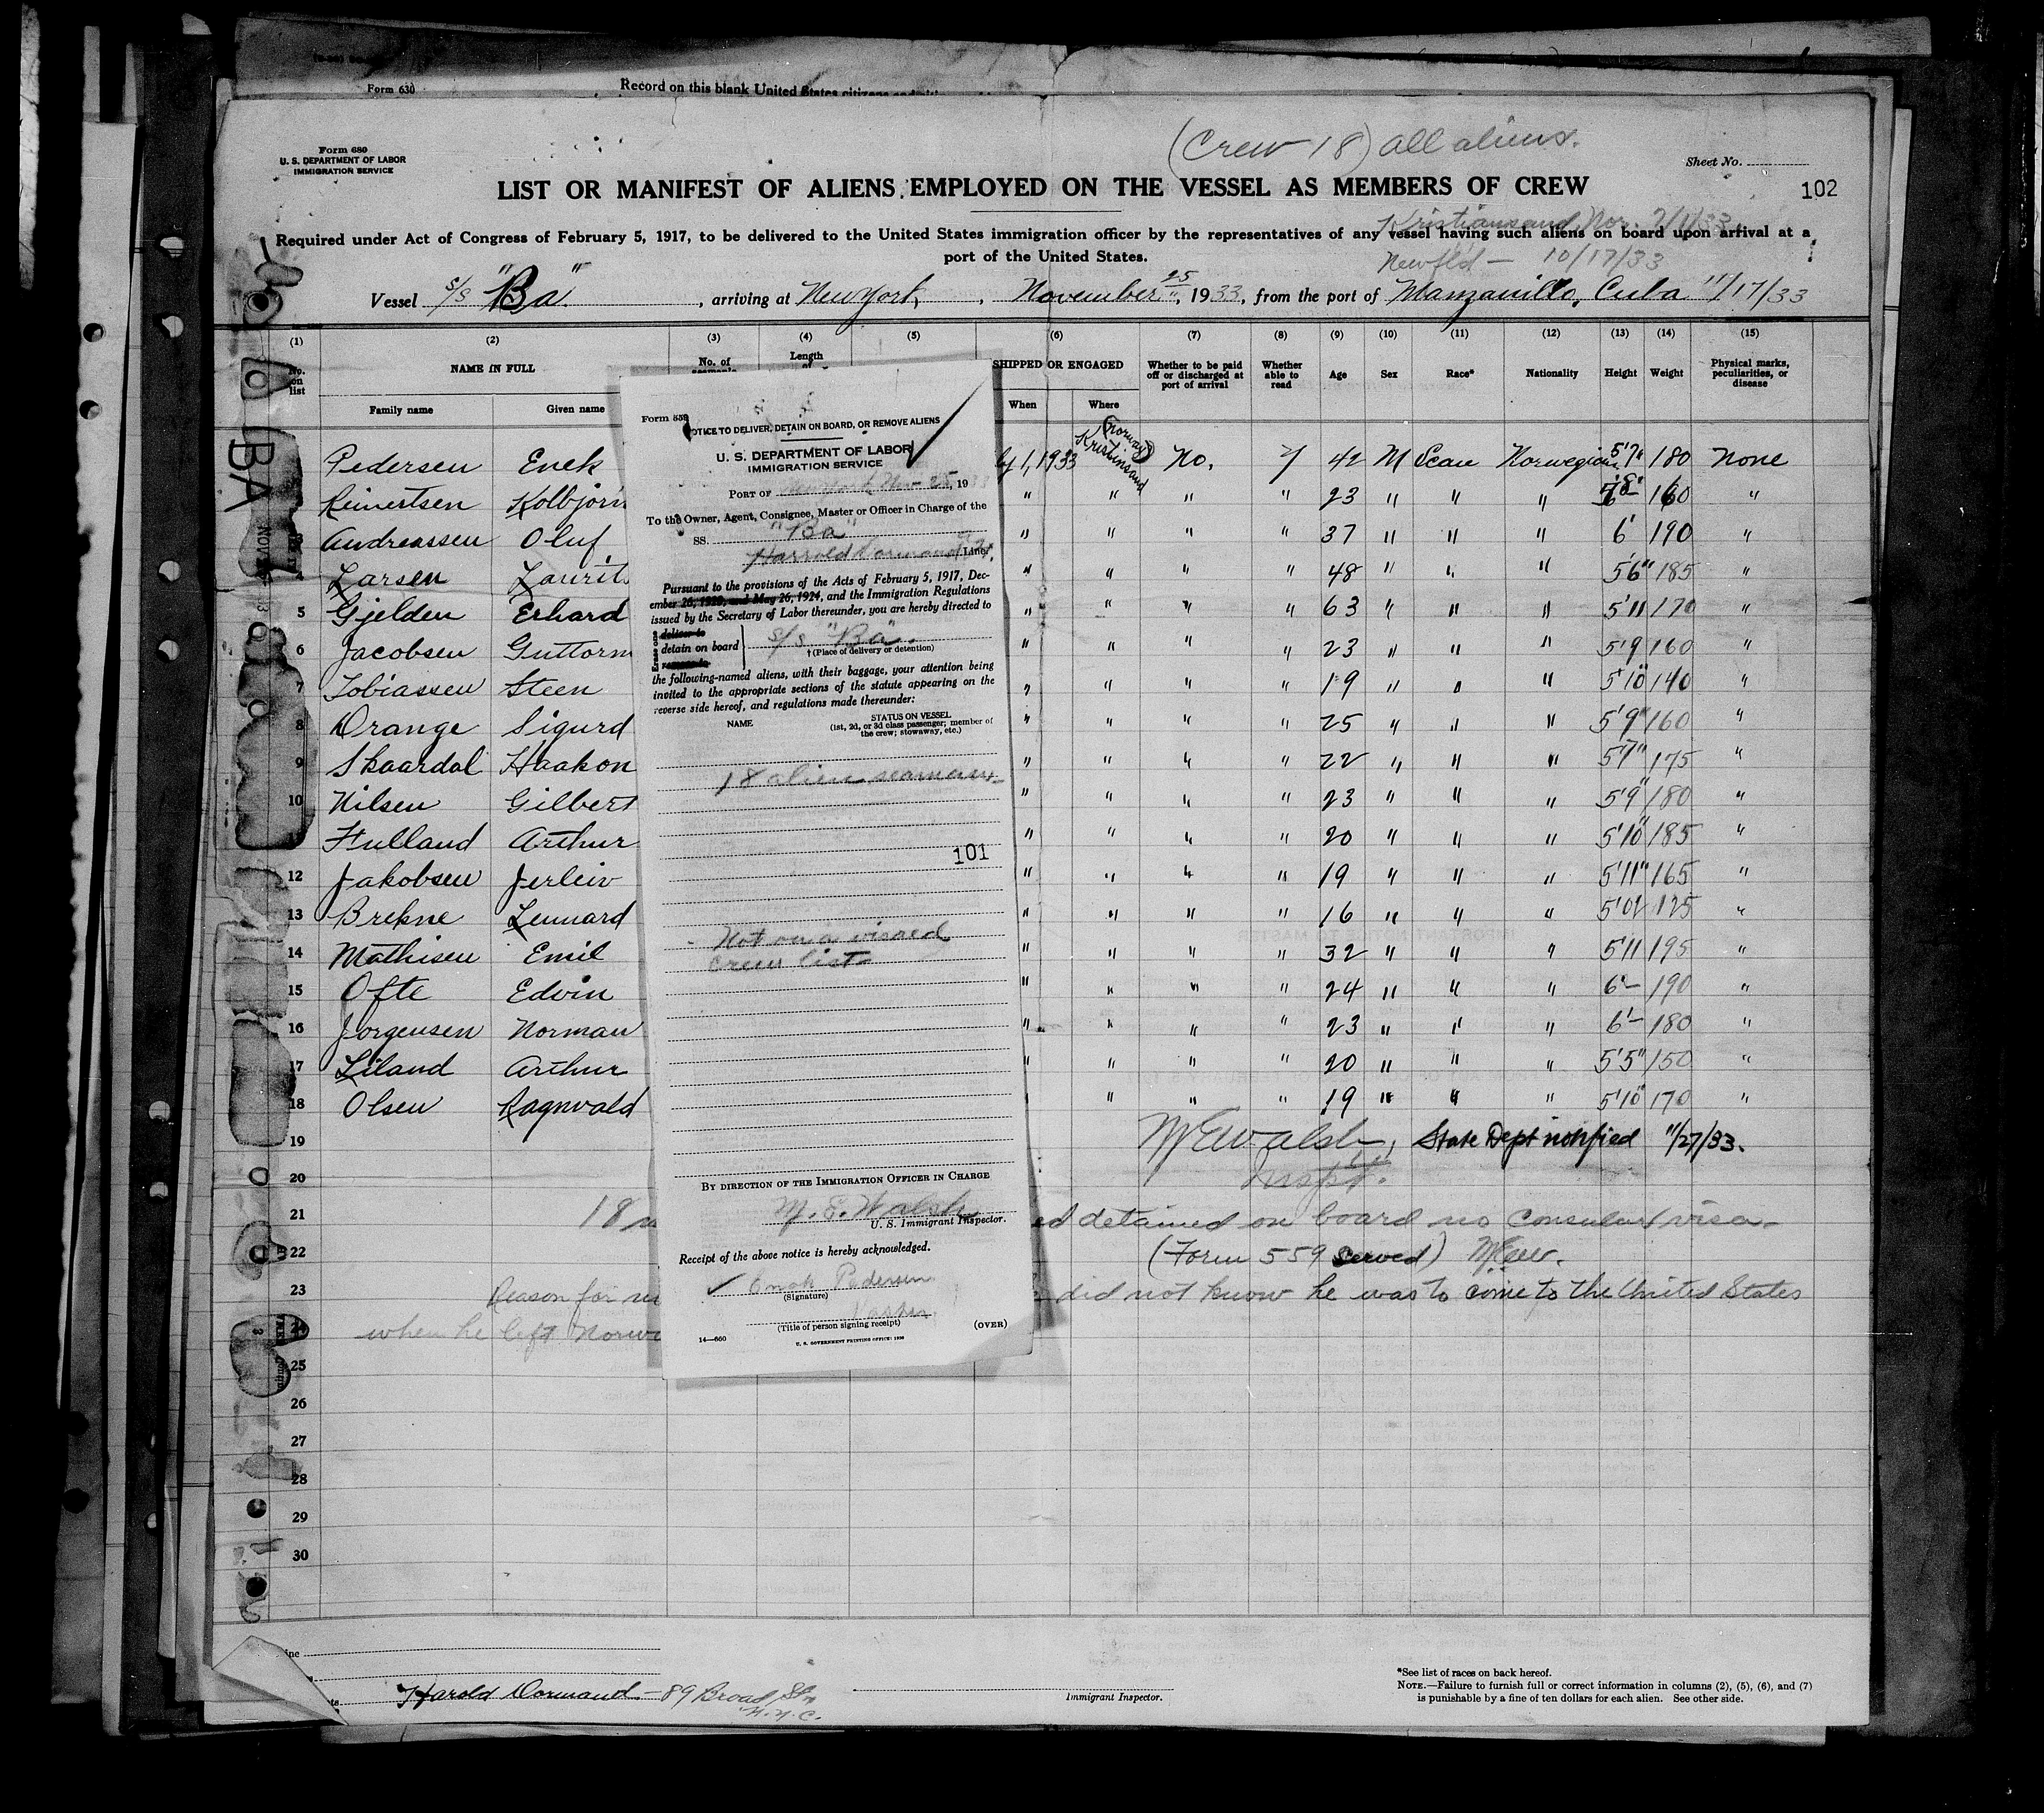 Form 630
Record on this blank United States citizens
Form 680
U. S. DEPARTMENT OF LABOR
IMMIGRATION SERVICE
(Crew 18) all aliens.
Sheet No.
LIST OR MANIFEST OF ALIENS EMPLOYED ON THE VESSEL AS MEMBERS OF CREW
102
Kristiansand Nor.
Required under Act of Congress of February 5, 1917, to be delivered to the United States immigration officer by the representatives of any vessel having such aliens on board upon arrival at a
port of the United States.
Newfld — 10/17/33
Vessel S/S "Ba", arriving at New York, November 25, 1933, from the port of Manzanillo, Cuba 11/17/33
(1) (2) (3) (4) (5) (6) (7) (8) (9) (10) (11) (12) (13) (14) (15)
No. on list NAME IN FULL No. of Length SHIPPED OR ENGAGED Whether to be paid off or discharged at port of arrival Whether able to read Age Sex Race* Nationality Height Weight Physical marks, peculiarities, or disease
Family name Given name When Where
BA
Pedersen Enek 1, 1933 Kristinsand (Norway) No. Y 42 M Scan Norwegian 5'7" 180 None
Reinertsen Kolbjorn " " " " 23 " " " 160 "
3 Andreassen Oluf " " " " 37 " " " 6' 190 "
4 Larsen Laurits " " " " 48 " " " 5'6" 185 "
5 Gjelden Erhard " " " " 63 " " " 5'11 170 "
6 Jacobsen Guttorm " " " " 23 " " " 5'9 160 "
7 Tobiassen Steen " " " " 19 " " " 5'10" 140 "
8 Drange Sigurd " " " " 25 " " " 5'9" 160 "
9 Skaardal Haakon " " " " 22 " " " 5'7" 175 "
10 Nilsen Gilbert " " " " 23 " " " 5'9" 180 "
Fulland Arthur " " " " 20 " " " 5'10" 185 "
12 Jakobsen Jerleiv " " " " 19 " " " 5'11" 165 "
13 Brekne Lennard " " " " 16 " " " 5'02 125 "
14 Mathisen Emil " " " " 32 " " " 5'11 195 "
15 Ofte Edvin " " " " 24 " " " 6'– 190 "
16 Jorgensen Norman " " " " 23 " " " 6'– 180 "
17 Liland Arthur " " " " 20 " " " 5'5" 150 "
18 Olsen Ragnvald " " " 19 " " " 5'10" 170 "
19 M E Walsh, State Dept notified 11/27/33.
20 Inspt.
21 18 ed detained on board no consular visa—
22 (Form 559 served) MEW.
23 Reason for did not know he was to come to the United States
when he left Norw
25
26
27
28
29
30
Harold Dormand — 89 Broad St.,
N.Y.C.
Immigrant Inspector.
*See list of races on back hereof.
NOTE.—Failure to furnish full or correct information in columns (2), (5), (6), and (7)
is punishable by a fine of ten dollars for each alien. See other side.
Form 559
NOTICE TO DELIVER, DETAIN ON BOARD, OR REMOVE ALIENS
U. S. DEPARTMENT OF LABOR
IMMIGRATION SERVICE
PORT OF New York, Nov - 25, 1933
To the Owner, Agent, Consignee, Master or Officer in Charge of the
SS. "Ba"
Harrold Dormand Line,
Pursuant to the provisions of the Acts of February 5, 1917, Dec-
ember 26, 1920, and May 26, 1924, and the Immigration Regulations
issued by the Secretary of Labor thereunder, you are hereby directed to
Erase one
deliver to
detain on board S/S "Ba".
remove to
†(Place of delivery or detention)
the following-named aliens, with their baggage, your attention being
invited to the appropriate sections of the statute appearing on the
reverse side hereof, and regulations made thereunder:
NAME STATUS ON VESSEL
(1st, 2d, or 3d class passenger; member of
the crew; stowaway, etc.)
18 alien seamen
101
Not on a visaed
crew list
BY DIRECTION OF THE IMMIGRATION OFFICER IN CHARGE
M. E. Walsh
U. S. Immigrant Inspector.
Receipt of the above notice is hereby acknowledged.
Pedersen
(Signature)
(Title of person signing receipt)
14—660
U. S. GOVERNMENT PRINTING OFFICE: 1930
(OVER)